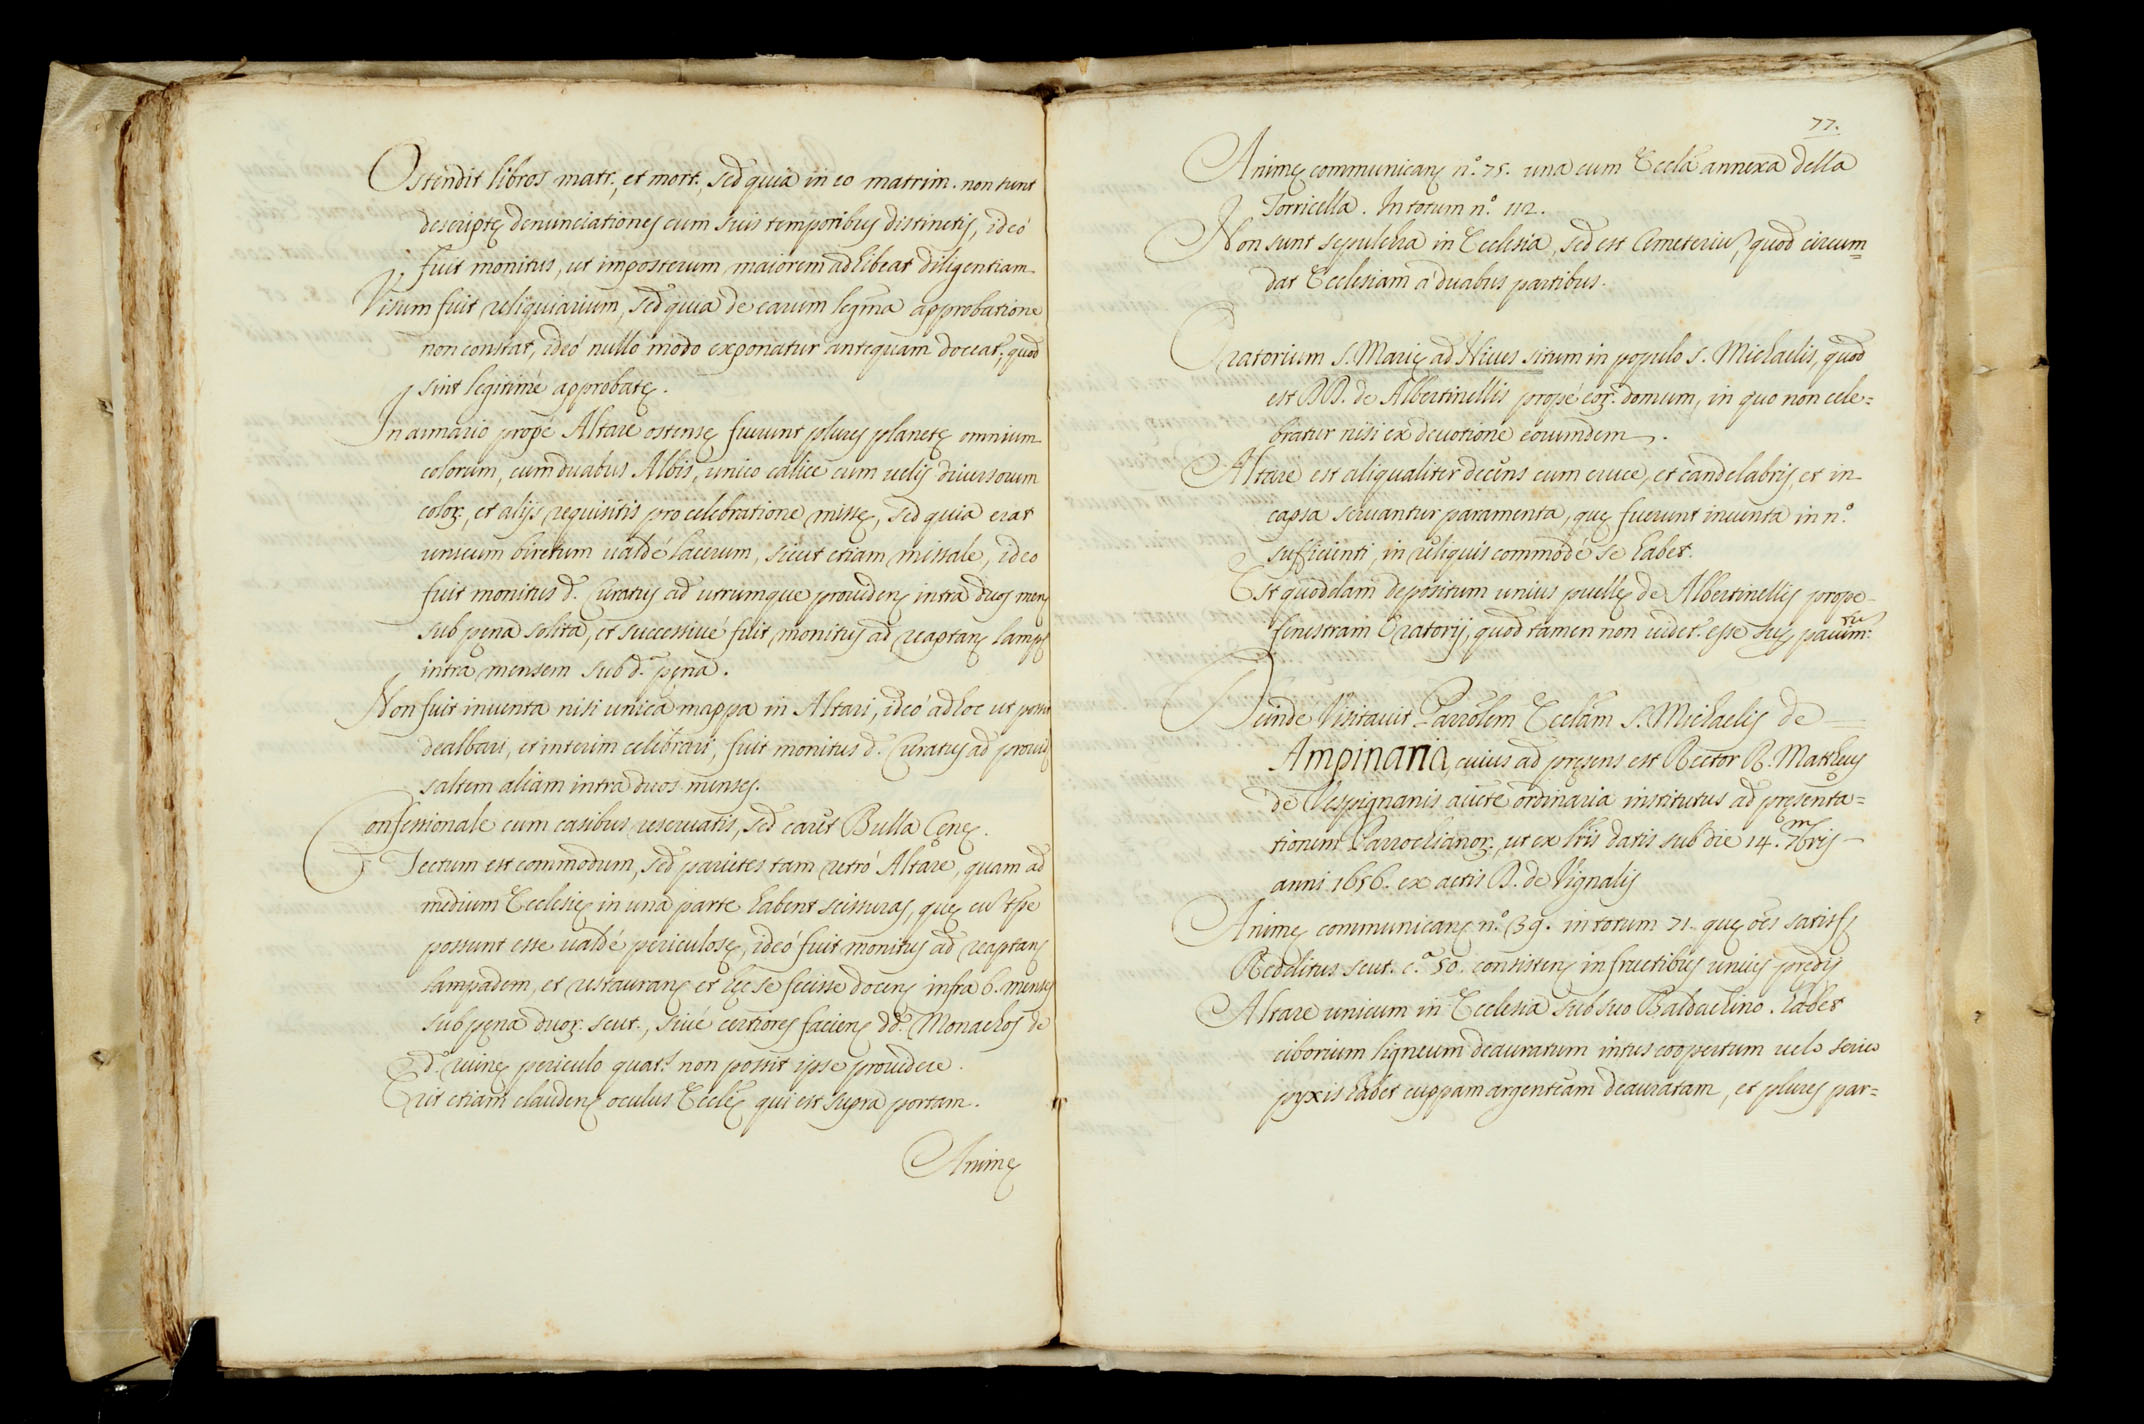 Ostendit libros matr., et mort., sed quia in eo matrim. non sunt
descriptę denunciationes cum suis temporibus distinctis, ideó
fuit monitus, ut imposterum maiorem adhibeat diligentiam
Visum fuit reliquiarium, sed quia de earum legma approbatione
non constat, ideó nullo modo exponatur antequam doceat, quod
sint legitimé approbatę.
In armario propé Altare ostensę fuerunt plures planetę omnium
colorum, cum duabus Albis, unico calice cum velis diuersorum
color., et alijs requisitis pro celebratione missę, sed quia erat
unicum biretum valdé lacerum, sicut etiam missale, ideo
fuit monitus d. Curatus ad utrumque prouidenę intra duos mens
sub pęna solita, et successiué fuit monitus ad reaptanę lampę
intra mensem sub d.ª pęna.
Non fuit inuenta nisi unica mappa in Altari, ideó ad hoc ut possit
dealbari, et interim celebrari, fuit monitus d. Curatus ad prouid
saltem aliam intra duos menses.
Confessionale cum casibus reseruatis, sed caret Bulla Cenę.
Tectum est commodum, sed parietes tam retró Altare, quam ad
medium Ecclesię in una parte habent scissuras, quę cu tpe
possunt esse valdé periculosę, ideó fuit monitus ad reaptanę
lampadem, et restauranę et hęc se fecisse docenę infra 6. menses
sub pęna duor. scut., siué certiores facienę dd. Monachos de
d.º ruinę periculo quat.s non possit ipse prouidere.
Erit etiam claudenę oculus Ecclę qui est supra portam.
Animę
77.
Animę communicanę n.º 75. una cum Eccla annexa della
Torricella. In totum n.º 112.
Non sunt sepulchra in Ecclesia, sed est Cemeteriu, quod circum=
dat Ecclesiam á duabus partibus.
Oratorium S. Marię ad Niues situm in populo S. Michaelis, quod
est DD. de Albertinellis propé eor. domum, in quo non cele=
bratur nisi ex deuotione eorumdem.
Altare est aliqualiter decens cum cruce, et candelabris, et in
capsa seruantur paramenta, quę fuerunt inuenta in n.º
sufficienti, in reliquis commodé se habet.
Est quoddam depositum unius puellę de Albertinellis prope
fenestram Oratorij, quod tamen non uidet.r esse sup pauim.tu
Deinde Visitauit Parrolem Ecclam S. Michaelis de
Ampinaria, cuius ad pręsens est Rector R. Mattheus
de Vespignanis aucte ordinaria institutus ad pręsenta=
tionem Parrochianor., ut ex lris datis sub die 14. m. 7bris
anni 1656. ex actis D. de Vignalis
Animę communicanę n.º 39. in totum 71. quę oes satisf.
Redditus scut. c.ª 50. consistenę in fructibus unius prędij
Altare unicum in Ecclesia sub suo Baldachino. habet
ciborium ligneum deauratum intus coopertum uelo serico
pyxis habet cuppam argenteam deauratam, et plures par=